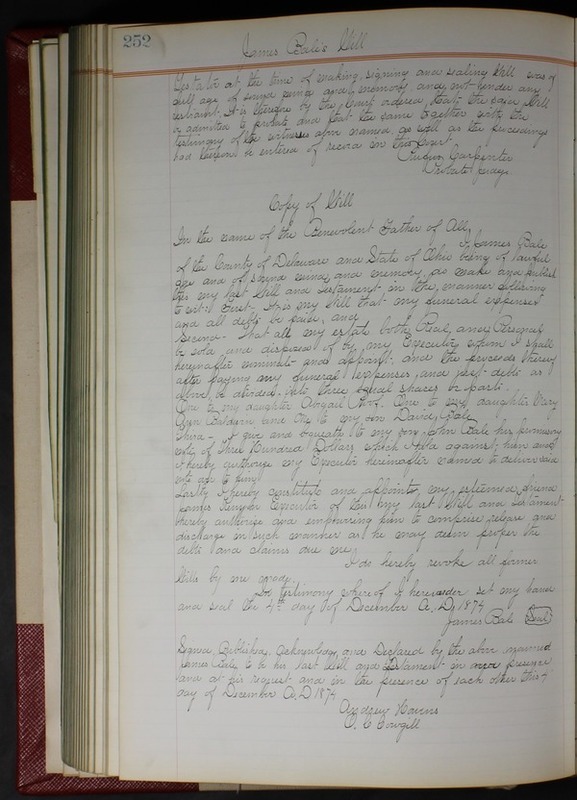 252
James Bale's Will
Testator at the time of making, signing and sealing Will was of
full age of sound mind and memory and not under any
restraint. It is therefore by the Court ordered, that the said Will
be admitted to probate and that the same together with the
testimony of the witnesses above named, as well as the proceedings
had thereon be entered of record in this Court.
Rufus Carpenter
Probate Judge.
Copy of Will
In the name of the Benevolent Father of All,
I James Bale
of the County of Delaware and State of Ohio being of lawful
age and of sound mind and memory, do make and publish
this my last Will and Testament in the manner following
to wit: First. It is my Will that my funeral expenses
and all debts be paid, and
Second- That all my estate both Real and Personal
be sold and disposed of by my Executor whom I shall
hereinafter nominate and appoint. and the proceeds thereof
after paying my funeral expenses, and just debts as
above be divided into three equal shares or parts.
One to my daughter Abigail One to my daughter Mary
Ann and One to my son David Bale
Third- I give and bequeath to my son John Bale his promissory
note of Three Hundred Dollars which I hold against him and
I hereby authorise my Executor hereinafter named to deliver said
note over to him.
Lastly I hereby constitute and appoint my esteemed friend
James Kenyon Executor of this my last Will and Testament
hereby authorise and empowering him to compromise release and
discharge in such manner as he may deem proper the
debts and claims due me
I do hereby revoke all former
Wills by me made.
In testimony whereof I hereunder set my hand
and seal the 4th day of December A.D. 1874
James Bale Seal
Signed, Published, Acknowledged and Declared by the above named
James Bale, to be his last Will and Testament in our presence
and at his request and in the presence of each other this 4
day of December A.D 1874
Andrew
C. C. Cowgill